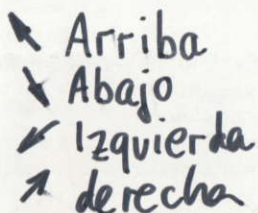 ↖ Arriba
↘ Abajo
↙ Izquierda
↗ derecha